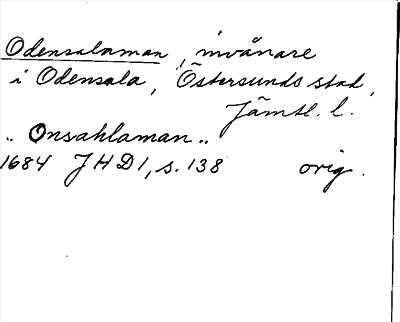 Odensalaman, invånare
i Odensala, Östersunds stad,
Jämtl. l.
„ Onsahlaman „
1684 JHD1, s. 138 orig.